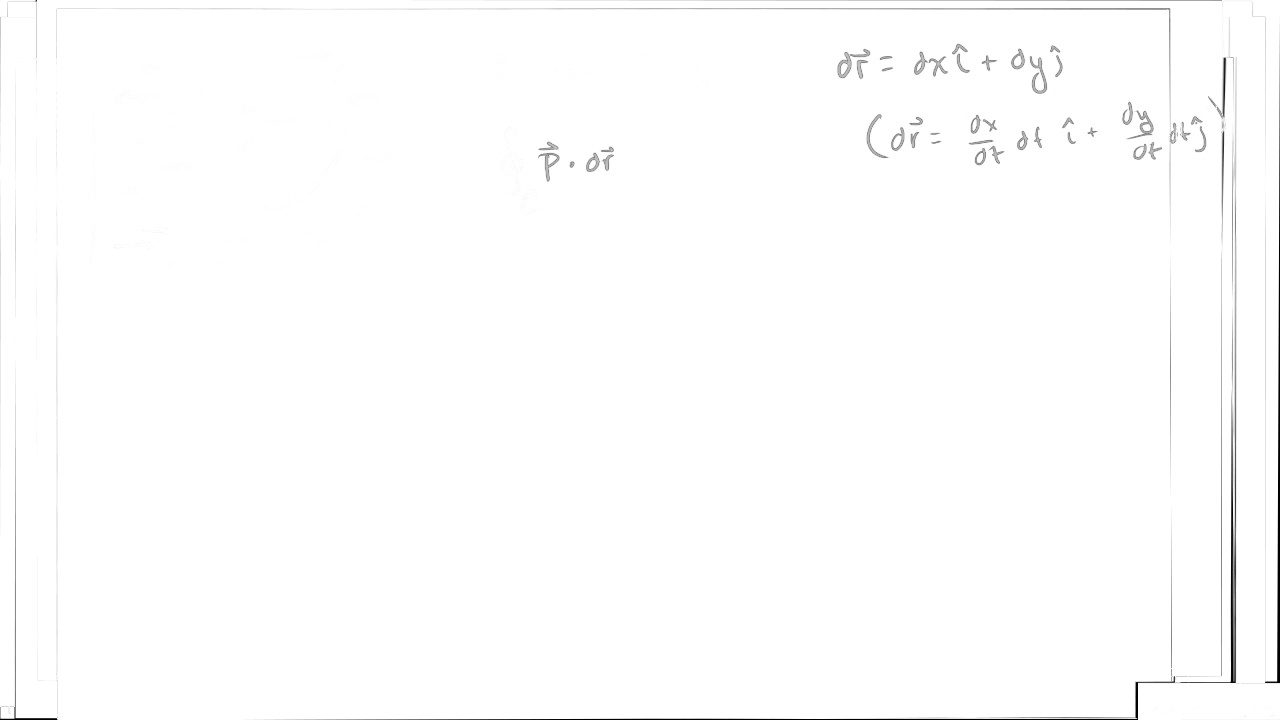 dr⃗ = dx î + dy ĵ
(dr⃗ = dx/dt dt î + dy/dt dt ĵ)
p⃗ · dr⃗